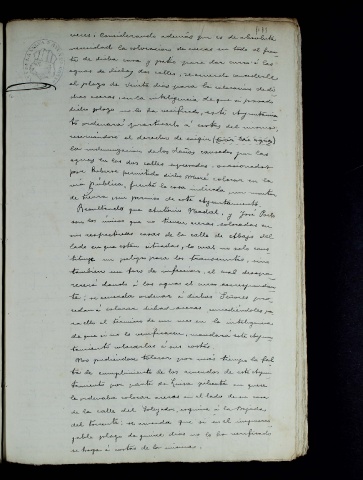 veces; Considerando además que es de absoluta
necesidad la colocación de aceras en todo el fren-
te de dicha casa y patio para dar curso á las
aguas de dichas dos calles, se acuerda concederle
el plazo de veinte días para la colocación de di-
chas aceras, en la inteligencia de que si pasado
dicho plazo no lo ha verificado, este Ayuntamien-
to ordenará practicarlo á costas del mismo,
reservándose el derecho de exigir
la indemnización de los daños causados por las
aguas en las dos calles agravados, ocasionados
por haberse permitido dicho colocar en la
vía pública, frente la casa indicada un monton
de tierra sin permiso de este Ayuntamiento.
Resultando que Antonio Nadal, y José
son los únicos que no tienen aceras colocadas en
sus respectivas casas de la calle de Abajo del
lado en que están situadas, lo cual no solo cons-
tituye un peligro para los transeuntes, sino
también un foco de infección, el cual desapa-
recerá dando á las aguas el curso correspondien-
te, se acuerda ordenar á dichos Señores pro-
cedan á colocar dichas aceras, concediéndoles pa-
ra ello el término de un mes en la inteligencia
de que si no lo verificaren, mandará este Ayun-
tamiento colocarlas á sus costas.
No pudiéndose tolerar por más tiempo la fal-
ta de cumplimiento de los acuerdos de este Ayun-
tamiento por parte de
le ordenaba colocar aceras en el lado de su casa
de la calle del esquina á la bajada
del torrente; se acuerda que si en el improrro-
gable plazo de quince días no lo ha verificado
se haga á costas de los mismos.